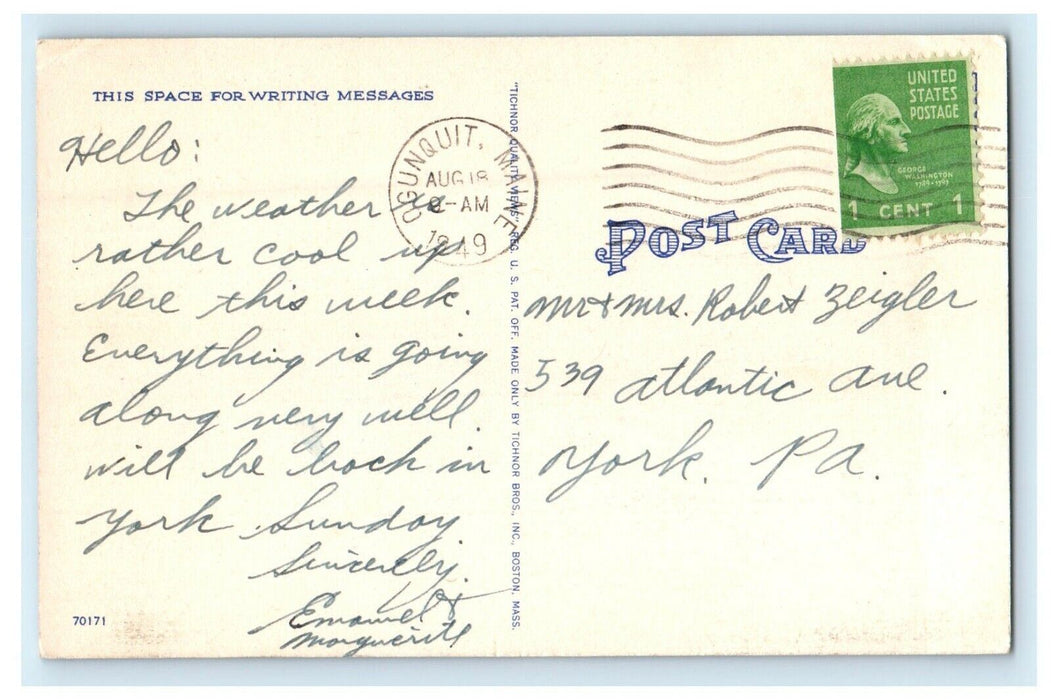 THIS SPACE FOR WRITING MESSAGES
Hello:
The weather is
rather cool up
here this week.
Everything is going
along very well.
will be back in
York Sunday
Sincerely.
Emanuel &
Marguerite
70171
"TICHNOR QUALITY VIEWS" REG. U. S. PAT. OFF. MADE ONLY BY TICHNOR BROS., INC., BOSTON, MASS.
OGUNQUIT, MAINE
AUG 18
-AM
1949
UNITED
STATES
POSTAGE
GEORGE
WASHINGTON
1789-1797
1 CENT 1
POST CARD
Mr & Mrs. Robert Zeigler
539 Atlantic Ave.
York, Pa.